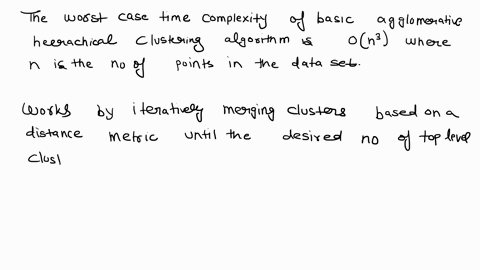 The worst case time complexity of basic agglomerative
heerachical clustering algorithm is O(n³) where
n is the no of points in the data set.
Works by iteratively merging clusters based on a
distance metric until the desired no of top level
clus